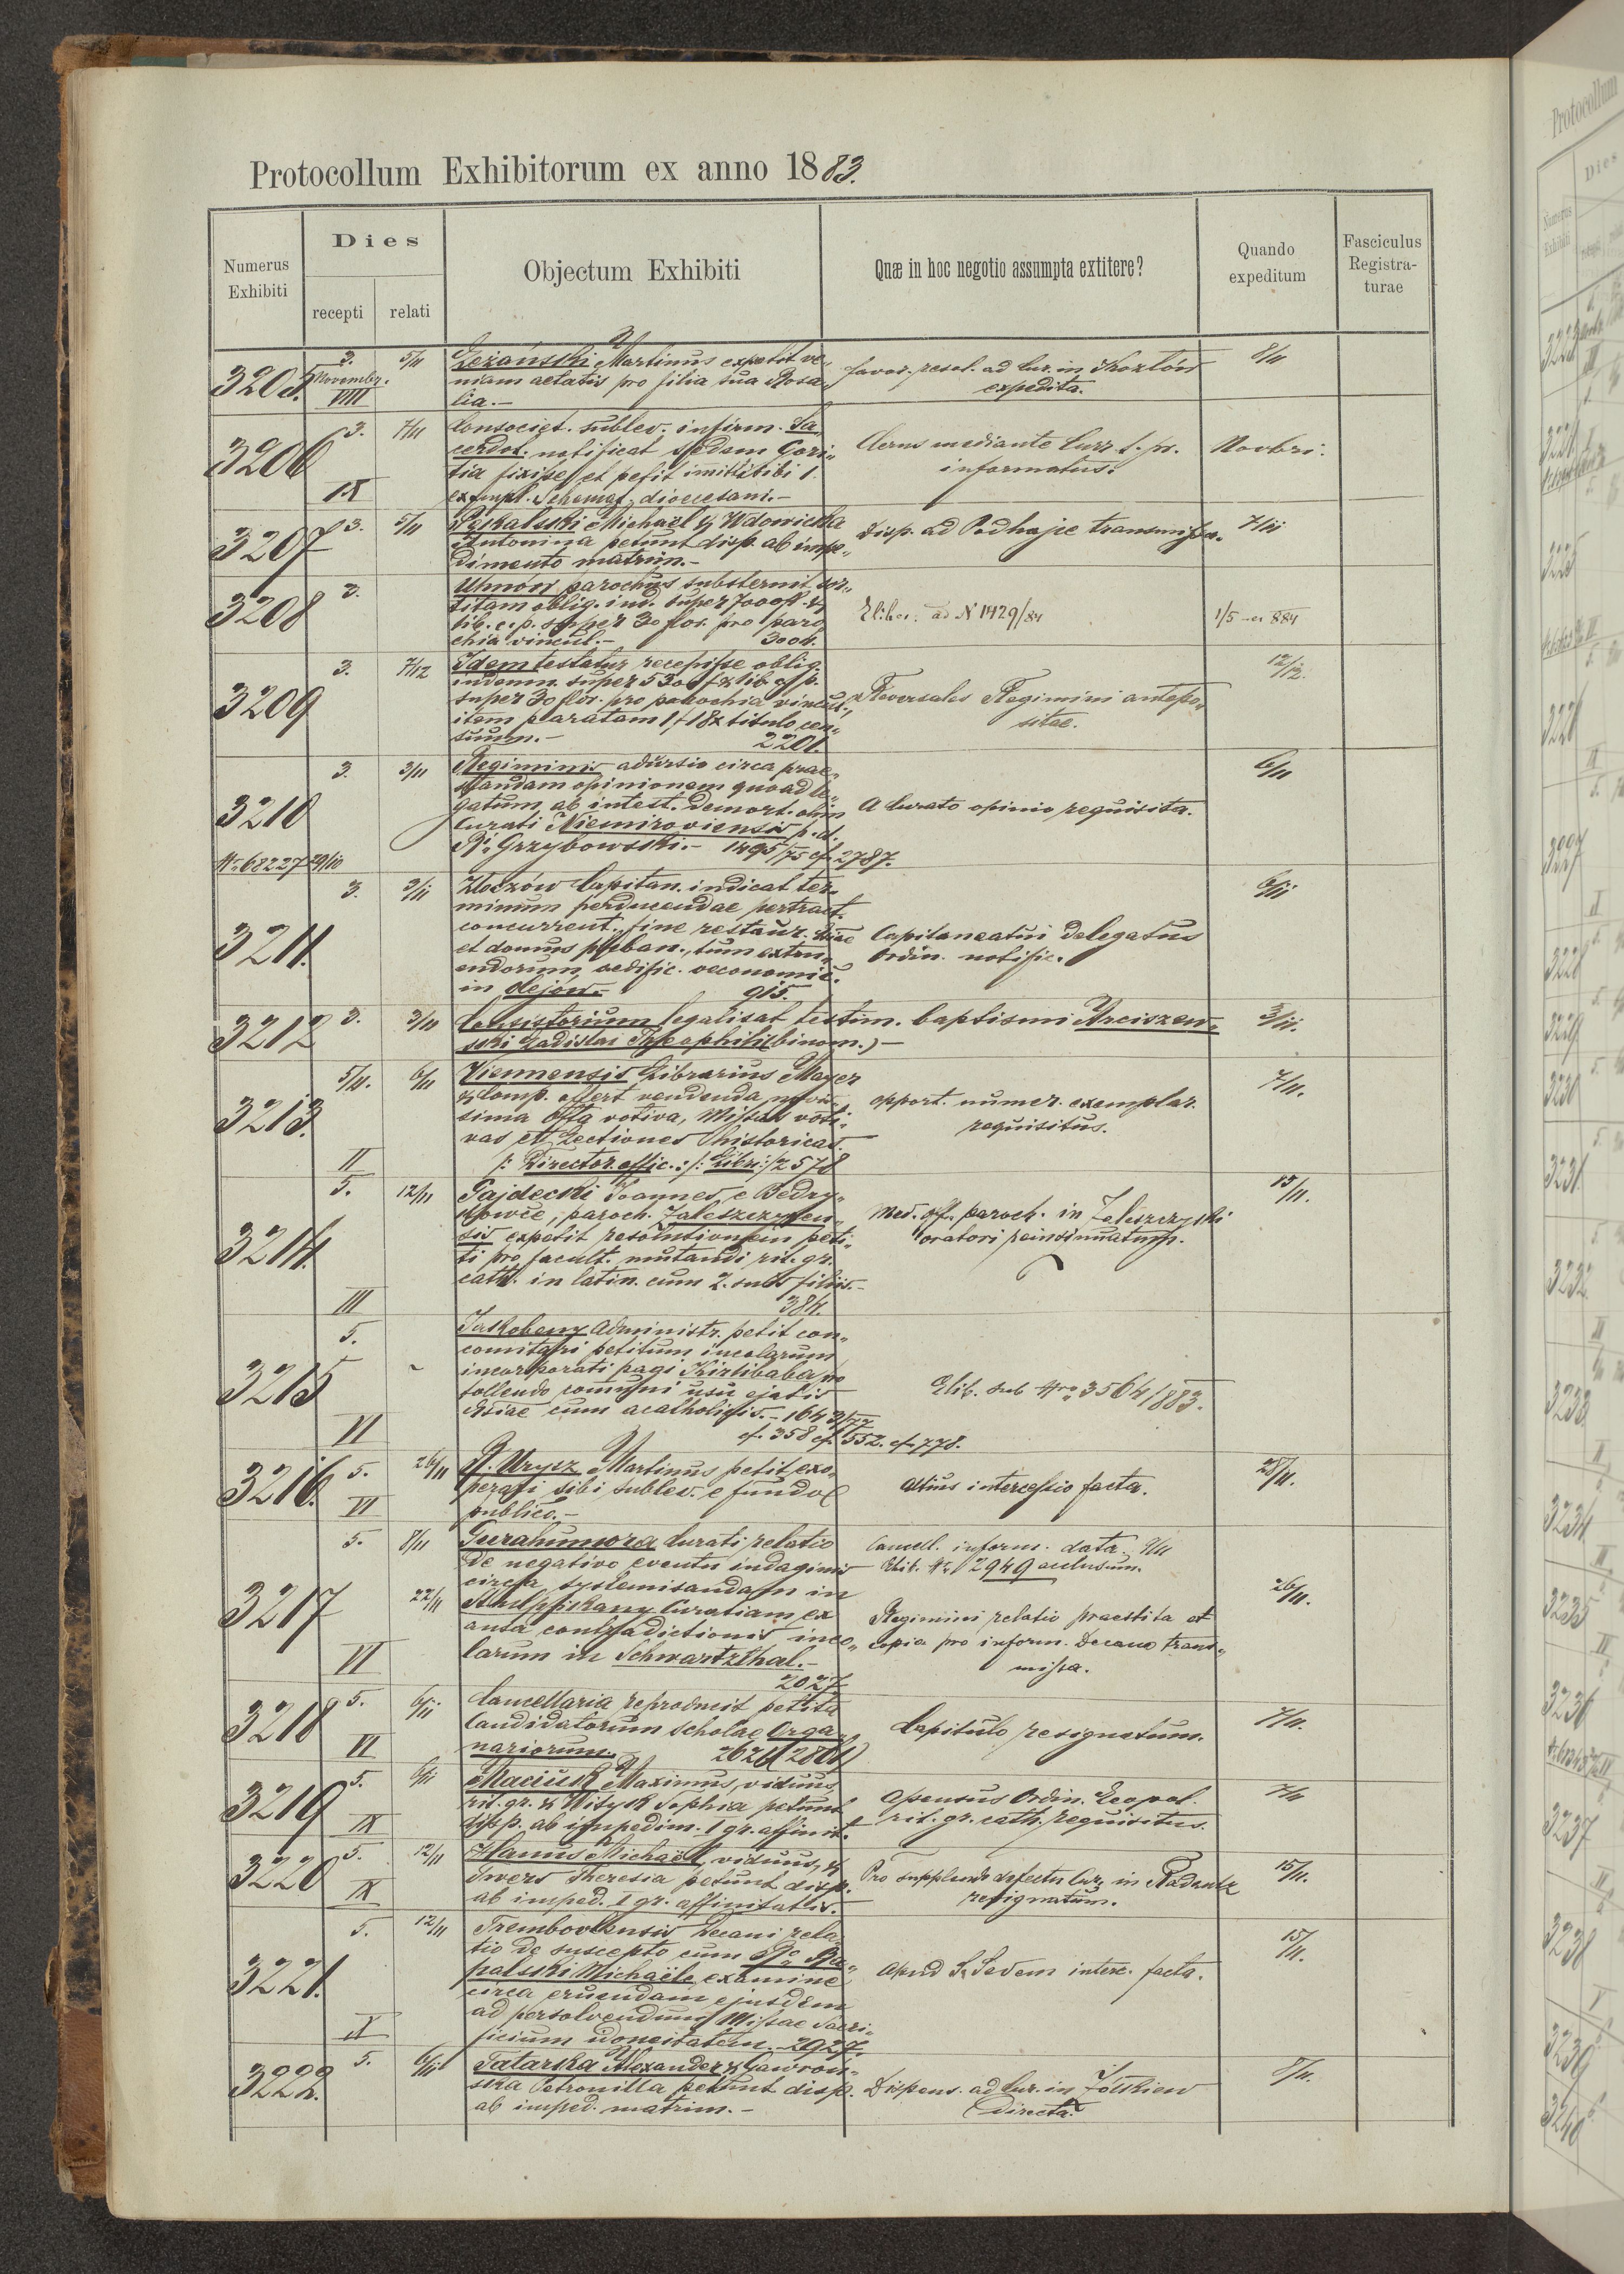 Protocollum Exhibitorum ex anno 1883.
Numerus Exhibiti
Dies
recepti relati
Objectum Exhibiti
Quæ in hoc negotio assumpta extitere?
Quando expeditum
Fasciculus Registra-turae
3205. 3. Novembr. VIII 5/11
Leżański Martinus expetit ve„
niam aetatis pro filia sua Rosa„
lia.-
favor. resol. ad Cur. in Kozłów
expedita.
8/11
3206 3. IX 7/11
Consociet. sublev. infirm. Sa„
cerdot. notificat Sedem Gori„
tia fixisse et petit imitti sibi 1.
exempl. Schemat. dioecesani.-
Clerus mediante Curr. informatus.
Novbri.
3207 3. 5/11
Michael & Wdowicka
Antonina petunt disp. ab impe„
dimento matrim.-
Disp. ad Podhajce transmissa.
7/11
3208 3.
Uhnów parochus substernit sor„
titam oblig. ind. super 7000 fl. &
lib. c. p. super 30 flor. pro paro
chia vincul.- 3004.
Elib. ad N 1429/84
1/5 884
3209 3. 7/12
Idem testatur recepisse oblig.
indemn. super 5300 f & lib. c. p.
super 30 flor. pro parochia vincul.,
item paratam 1 f 18 x titulo cen„
suum.- 2201.
Reversales Regimini antepo„
sitae.
12/12.
3210 3. 3/11
Nr 68227 29/10
Regiminis adursio circa prae„
standam opinionem quoad le„
gatum ab intest. demort. olim
Curati Niemiroviensis p. d.
R. Grzybowski.- 1495/75 cf. 2787.
A Curato opinio requisita.
6/11
3211. 3. 3/11
Złoczów Capitan. indicat ter„
minum perducendae pertract.
concurrent. fine restaur. Eccae
et domus pleban., tum exten„
endorum aedific. oeconomic.
in Olejów.- 915.
Capitaneatui Delegatus
Ordin. notific.
6/11
3212 3. 3/11
Consistorium legalisat testim. baptismi Arciszew„
ski Ladislai Theophili (binom.)-
3/11.
3213. 5/11. II 6/11
Viennensis Librarius Mayer
& Comp. offert vendenda novis„
sima Offa votiva, Missas voti„
vas et Lectiones historicas.
/: Director. offic.:/: Libri:/ 2578
opport. numer. exemplar.
requisitus.
7/11.
3214. 5. III 12/11
Gajdecki Joannes e Bedry„
kowce, paroch. Zaleszczyken„
sis expetit resolutionem peti„
ti pro facult. mutandi rit. gr.
cath. in latin. cum 2. suis filiis.-
384.
Med. off. paroch. in Zaleszczyki
oratori reinsinuatum.
15/11.
3215 5. VI
Jakobeny Administr. petit con„
comitari petitum incolarum
incorporati pagi Kirlibaba pro
tollendo communi usu ejatis
Eccliae cum acatholicis.- 1643/77
cf. 358 cf. 552. cf. 778.
Elib. sub Nro 3564/1883.
3216. 5. VI 26/11
R. Wrysz Martinus petit exo„
perari sibi sublev. e fundo
publico.-
Altius intercessio facta.
28/11.
3217 5. VI 8/11 22/11
Gurahumora Curati relatio
de negativo eventu indaginis
circa systemisandam in
Stulpikany Curatiam ex
ansa contradictionis inco„
larum in Schwartzthal.-
2027
Cancell. inform. data. 9/11
Exib. Nr. 2949 acclusum.
Regimini relatio praestita et
copia pro inform. Decano trans„
missa.
26/11.
3218 5. VI 6/11
Cancellaria reproducit petita
Candidatorum Scholae Orga„
nariorum. 2626 (2861)
Capitulo resignatum.
7/11.
3219 5. IX 6/11
Maciuk Maximus, viduus,
rit. gr. & Witysk Sophia petunt
disp. ab impedim. I gr. affinit.
Assensus Ordin. Leopol.
rit. gr. cath. requisitus.
7/11
3220 5. IX 12/11
Hanus Michaël, viduus, &
Theresia petunt disp.
ab imped. I gr. affinitatis.-
Pro supplendo defectu Cur. in Radautz
resignatum.
15/11.
3221. 5. 12/11
Trembovlensis Decani rela„
tio de suscepto cum Ro. Ra„
palski Michaële examine
circa eruendam ejusdem
ad persolvendum Missae Sacri„
ficium idoneitatem. 2927.
Apud S. Sedem interc. facta.
15/11.
3222. 5. 6/11
Tatarska Alexander & Gawron„
ska Petronilla petunt disp.
ab imped. matrim.-
Dispens. ad Cur. in Żółkiew
directa.
8/11.